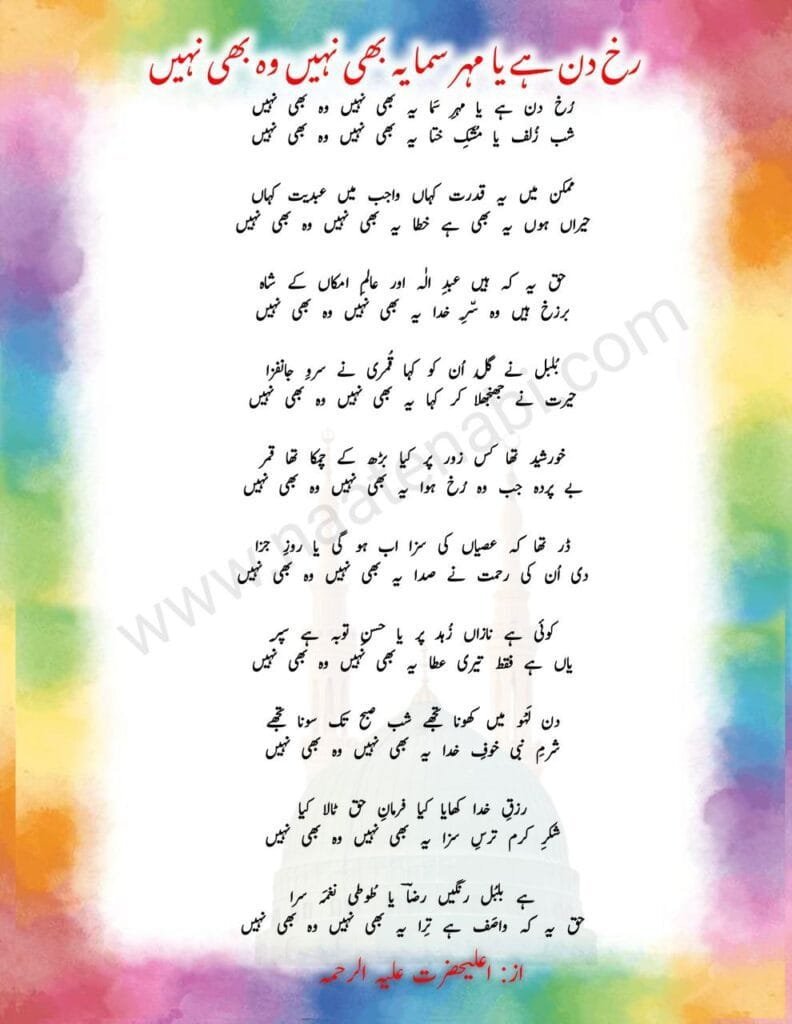 رخ دن ہے یا مہر سما یہ بھی نہیں وہ بھی نہیں
رُخ دن ہے یا مہرِ سَما یہ بھی نہیں وہ بھی نہیں
شب زُلف یا مُشکِ ختا یہ بھی نہیں وہ بھی نہیں
ممکن میں یہ قدرت کہاں واجب میں عبدیت کہاں
حیراں ہوں یہ بھی ہے خطا یہ بھی نہیں وہ بھی نہیں
حق یہ کہ ہیں عبدِ الٰہ اور عالمِ امکاں کے شاہ
برزخ ہیں وہ سّرِ خدا یہ بھی نہیں وہ بھی نہیں
بُلبل نے گل اُن کو کہا قُمری نے سروِ جانفزا
حیرت نے جھنجھلا کر کہا یہ بھی نہیں وہ بھی نہیں
خورشید تھا کس زور پر کیا بڑھ کے چمکا تھا قمر
بے پردہ جب وہ رُخ ہوا یہ بھی نہیں وہ بھی نہیں
ڈر تھا کہ عصیاں کی سزا اب ہو گی یا روزِ جزا
دی اُن کی رحمت نے صدا یہ بھی نہیں وہ بھی نہیں
کوئی ہے نازاں زُہد پر یا حسنِ توبہ ہے سپر
یاں ہے فقط تیری عطا یہ بھی نہیں وہ بھی نہیں
دن لَہْو میں کھونا تجھے شب صبح تک سونا تجھے
شرمِ نبی خوفِ خدا یہ بھی نہیں وہ بھی نہیں
رزقِ خدا کھایا کیا فرمانِ حق ٹالا کیا
شکرِ کرم ترسِ سزا یہ بھی نہیں وہ بھی نہیں
ہے بلبُل رنگیں رضاؔ یا طُوطی نغمَہ سرا
حق یہ کہ واصَف ہے تِرا یہ بھی نہیں وہ بھی نہیں
از: اعلیحضرت علیہ الرحمہ
www.naatenabi.com